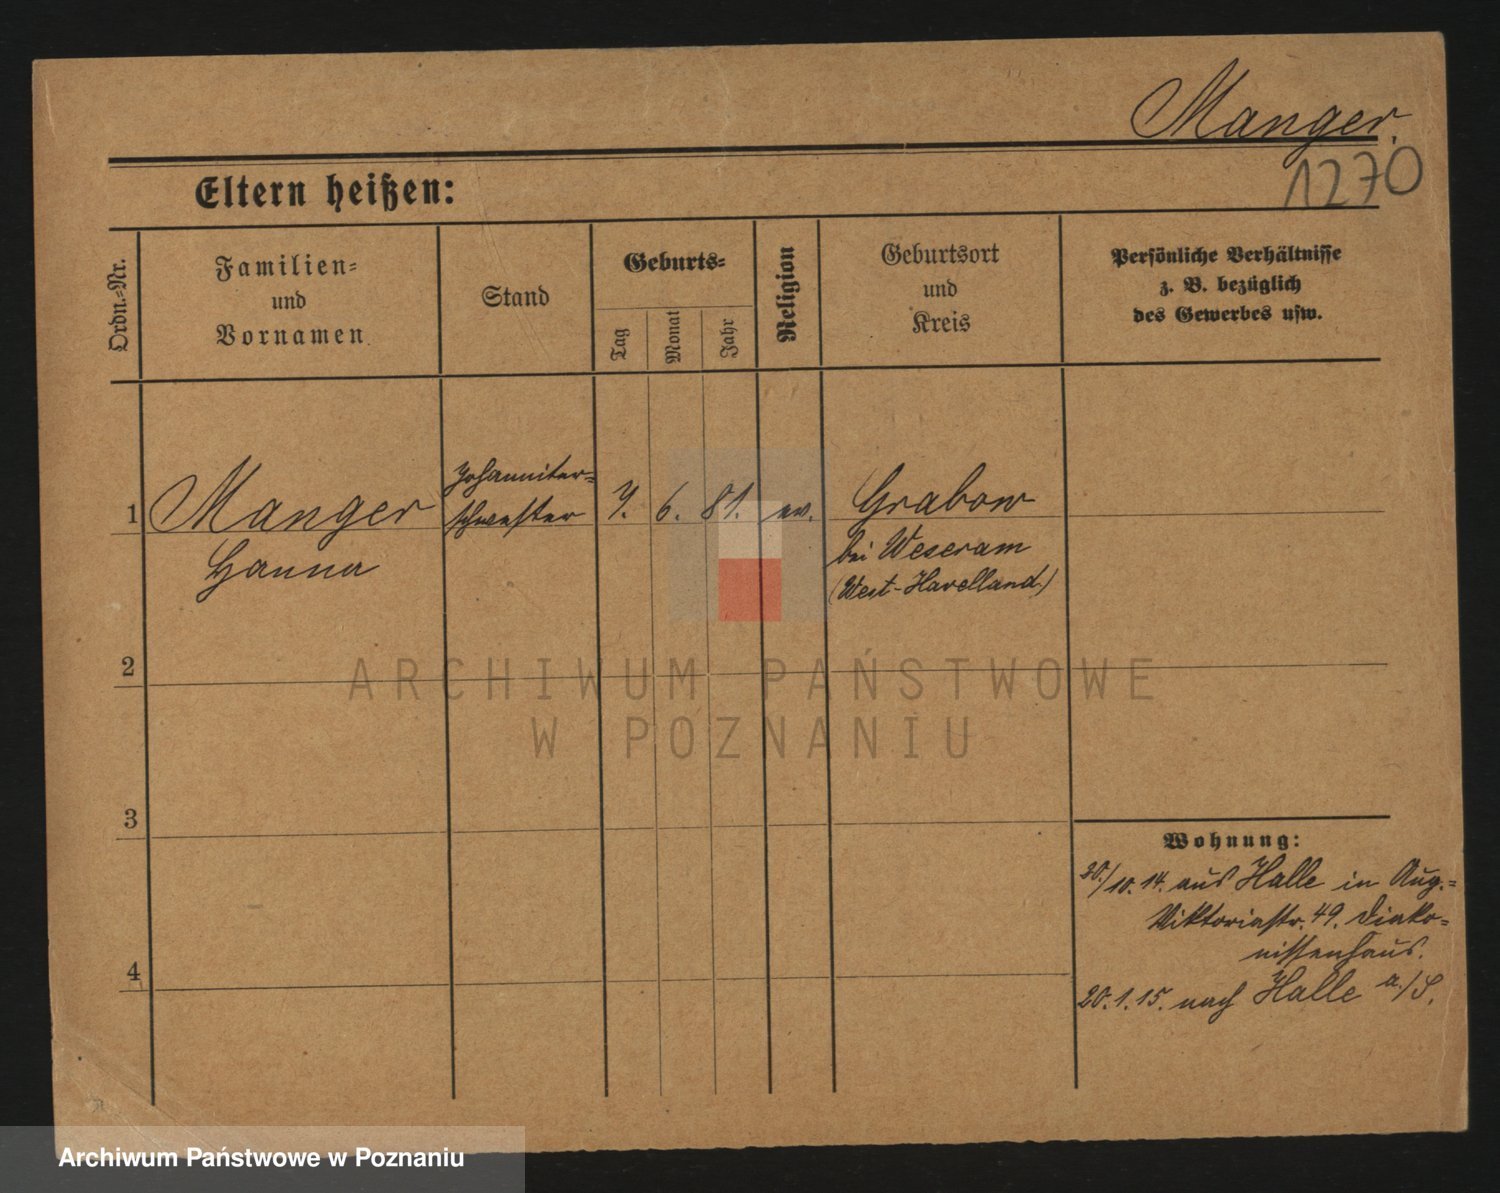 Manger.
1270
Eltern heißen:
Ordn.=Nr.
Familien=
und
Vornamen
Stand
Geburts=
Tag
Monat
Jahr
Religion
Geburtsort
und
Kreis
Persönliche Verhältnisse
z. B. bezüglich
des Gewerbes usw.
1
Manger
Hanna
Johanniter=
schwester
7. 6. 81. ev.
Grabow
bei Weseram
(West-Havelland)
2
3
4
Wohnung:
30./10.14. aus Halle in Aug.=
Viktoriastr. 49. Diako=
nissenhaus.
20.1.15. nach Halle a./S.
ARCHIWUM PAŃSTWOWE
W POZNANIU
Archiwum Państwowe w Poznaniu